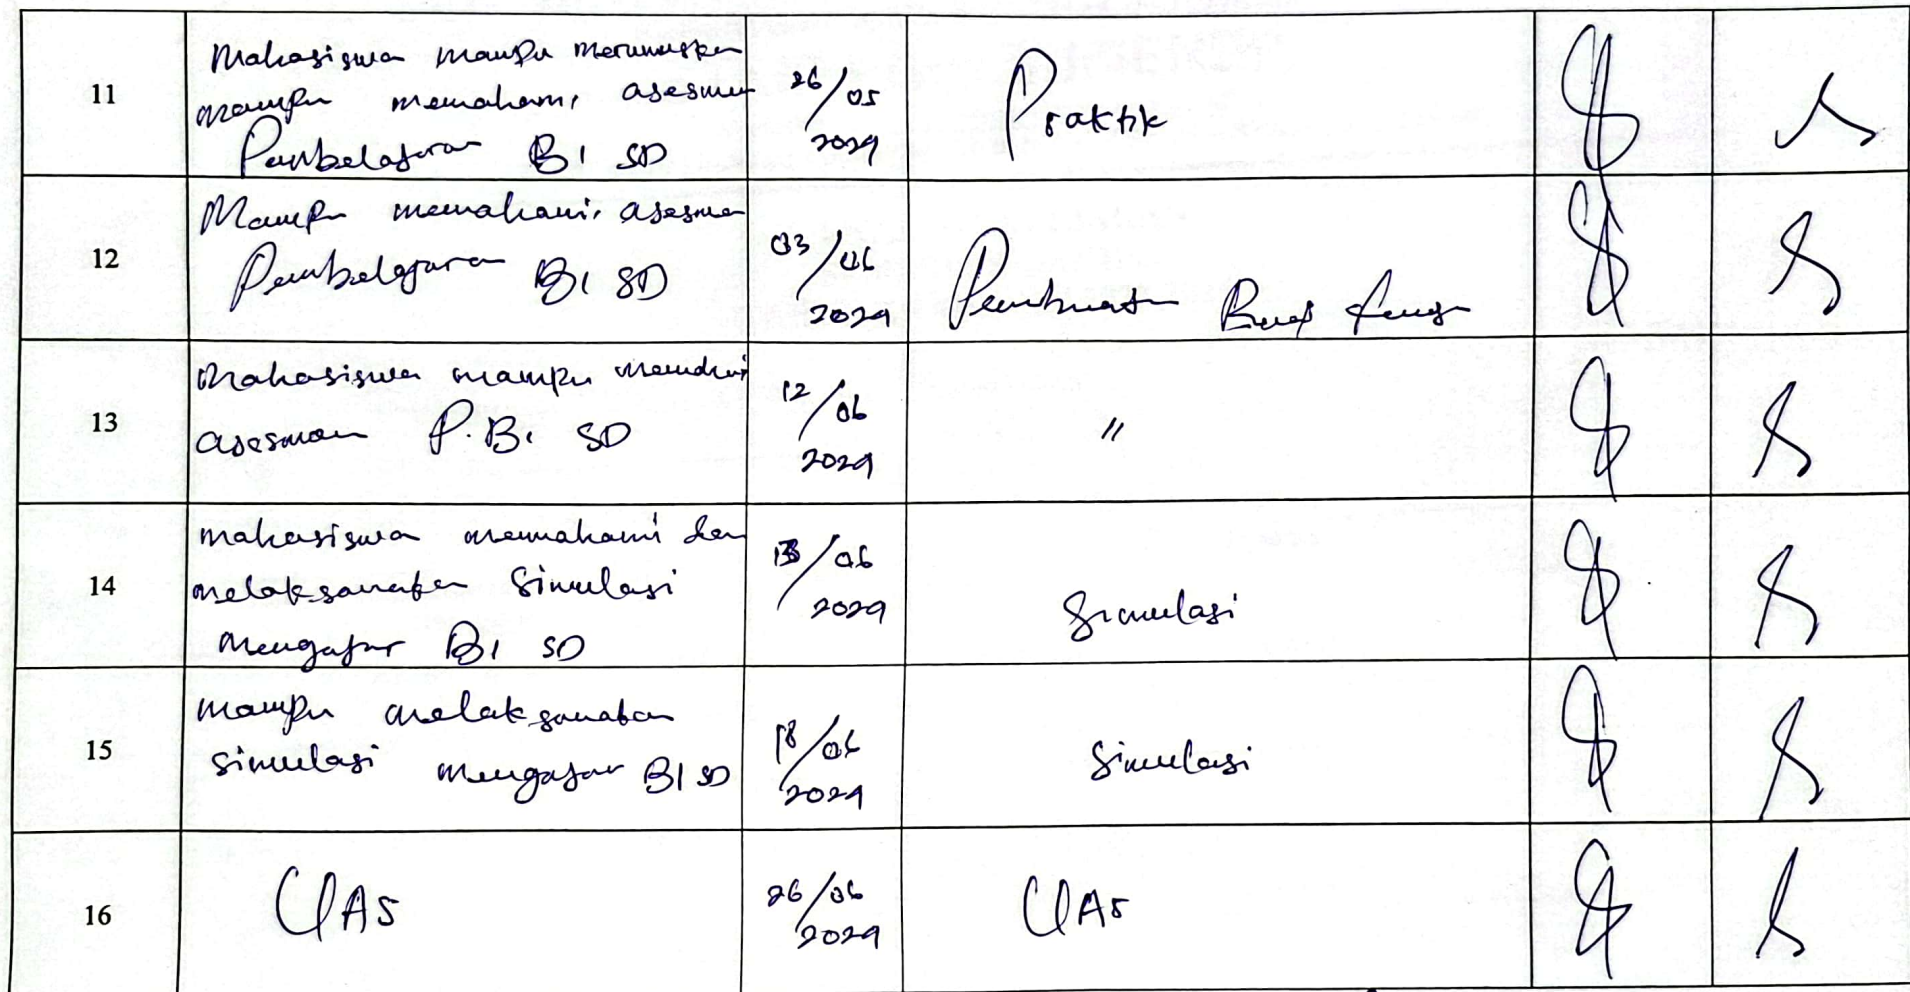 11
Mahasiswa mampu merumuskan
mampu memahami asesmen
Pembelajaran BI SD
26/05
2024
Praktik
12
Mampu memahami asesmen
Pembelajaran BI SD
03/06
2024
Pembuatan
13
Mahasiswa mampu
asesmen P.BI SD
12/06
2024
"
14
mahasiswa memahami dan
melaksanakan simulasi
mengajar BI SD
13/06
2024
Simulasi
15
mampu melaksanakan
simulasi mengajar BI SD
18/06
2024
Simulasi
16
UAS
26/06
2024
UAS